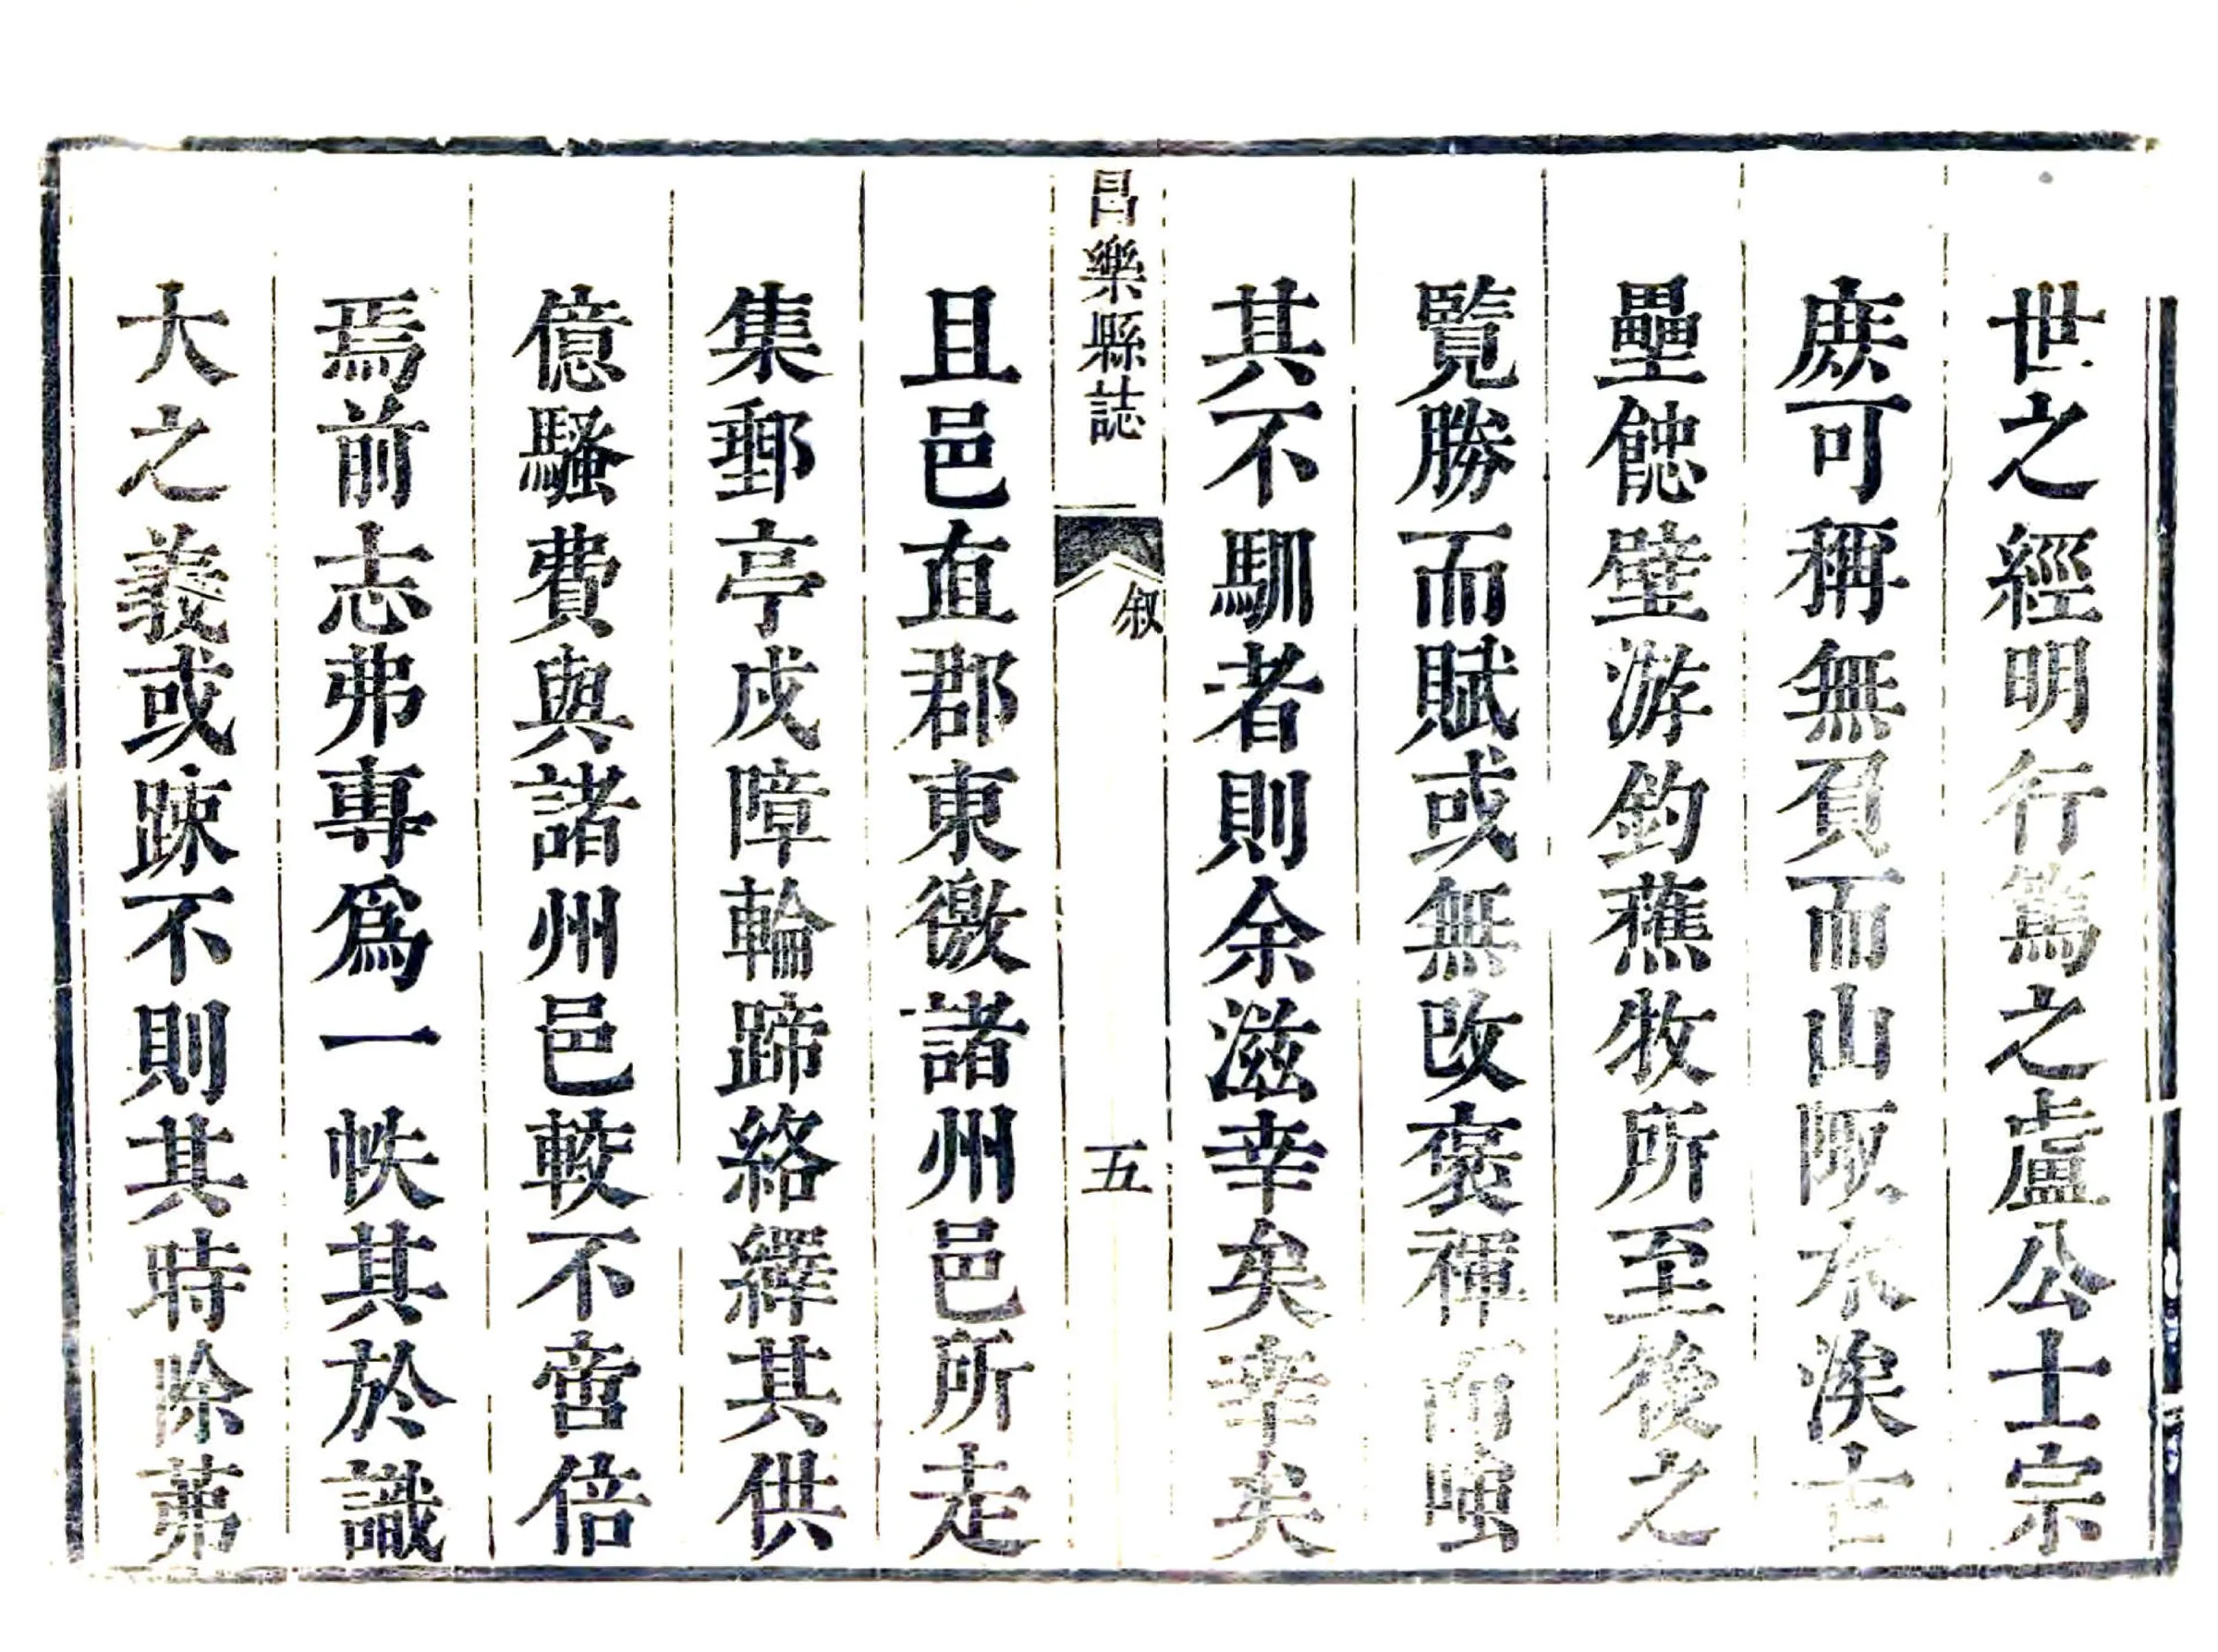 世之經明行篤之盧公士宗
庻可稱無負而山陬水涘古
壘餽璧游釣蕉牧所至後之
覧勝而賦或無改褎禈而嗤
其不馴者則余滋幸矣幸矣
昌樂縣誌
叙
五
且邑直郡東徼諸州邑所走
集郵亭戍障輪蹄絡繹其供
億騷費與諸州邑較不啻倍
焉前志弗專爲一帙其於識
大之義或踈不則其時除苐